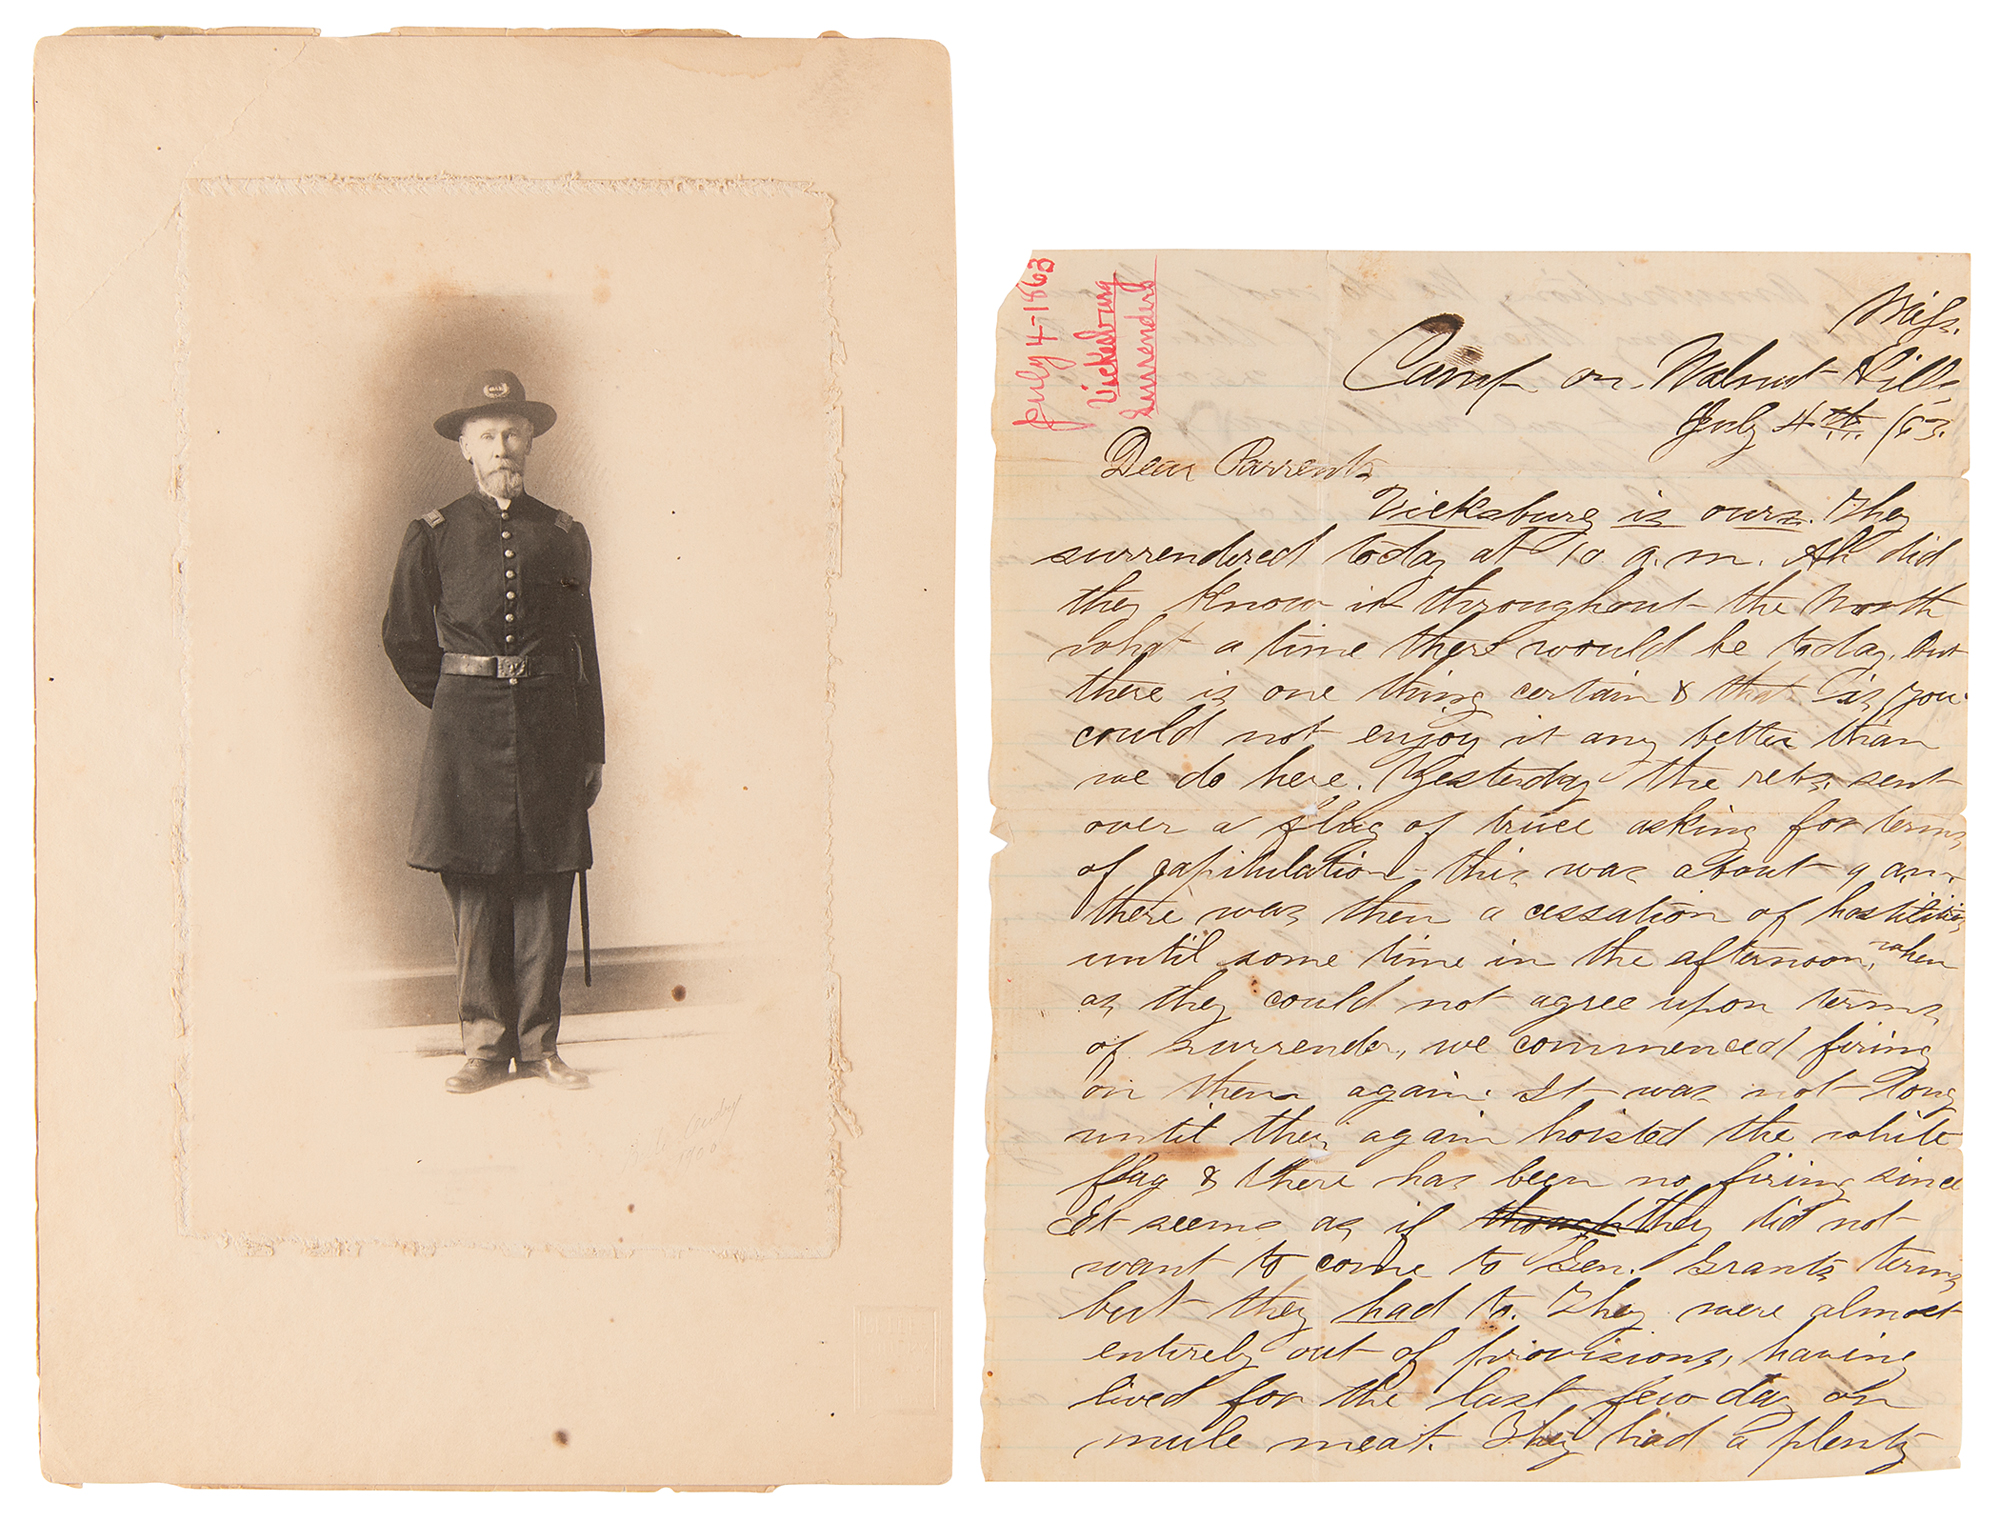 1900
July 4-1863
Vicksburg
Surrenders
Miss.
Camp on Walnut Hills
July 4th /63.
Dear Parrents
Vicksburg is ours. They
surrendered today at 10 a.m. Ah did
they know it throughout the North
what a time there would be today, but
there is one thing certain & that is you
could not enjoy it any better than
we do here. Yesterday the rebs. sent
over a flag of truce asking for terms
of capitulation - this was about 9 a.m.
there was then a cessation of hostilities
until some time in the afternoon, when
as they could not agree upon terms
of surrender, we commenced firing
on them again. It was not long
until they again hoisted the white
flag & there has been no firing since
It seems as if though they did not
want to come to Gen. Grants terms
but they had to. They were almost
entirely out of provisions, having
lived for the last few day on
mule meat. They had a plenty